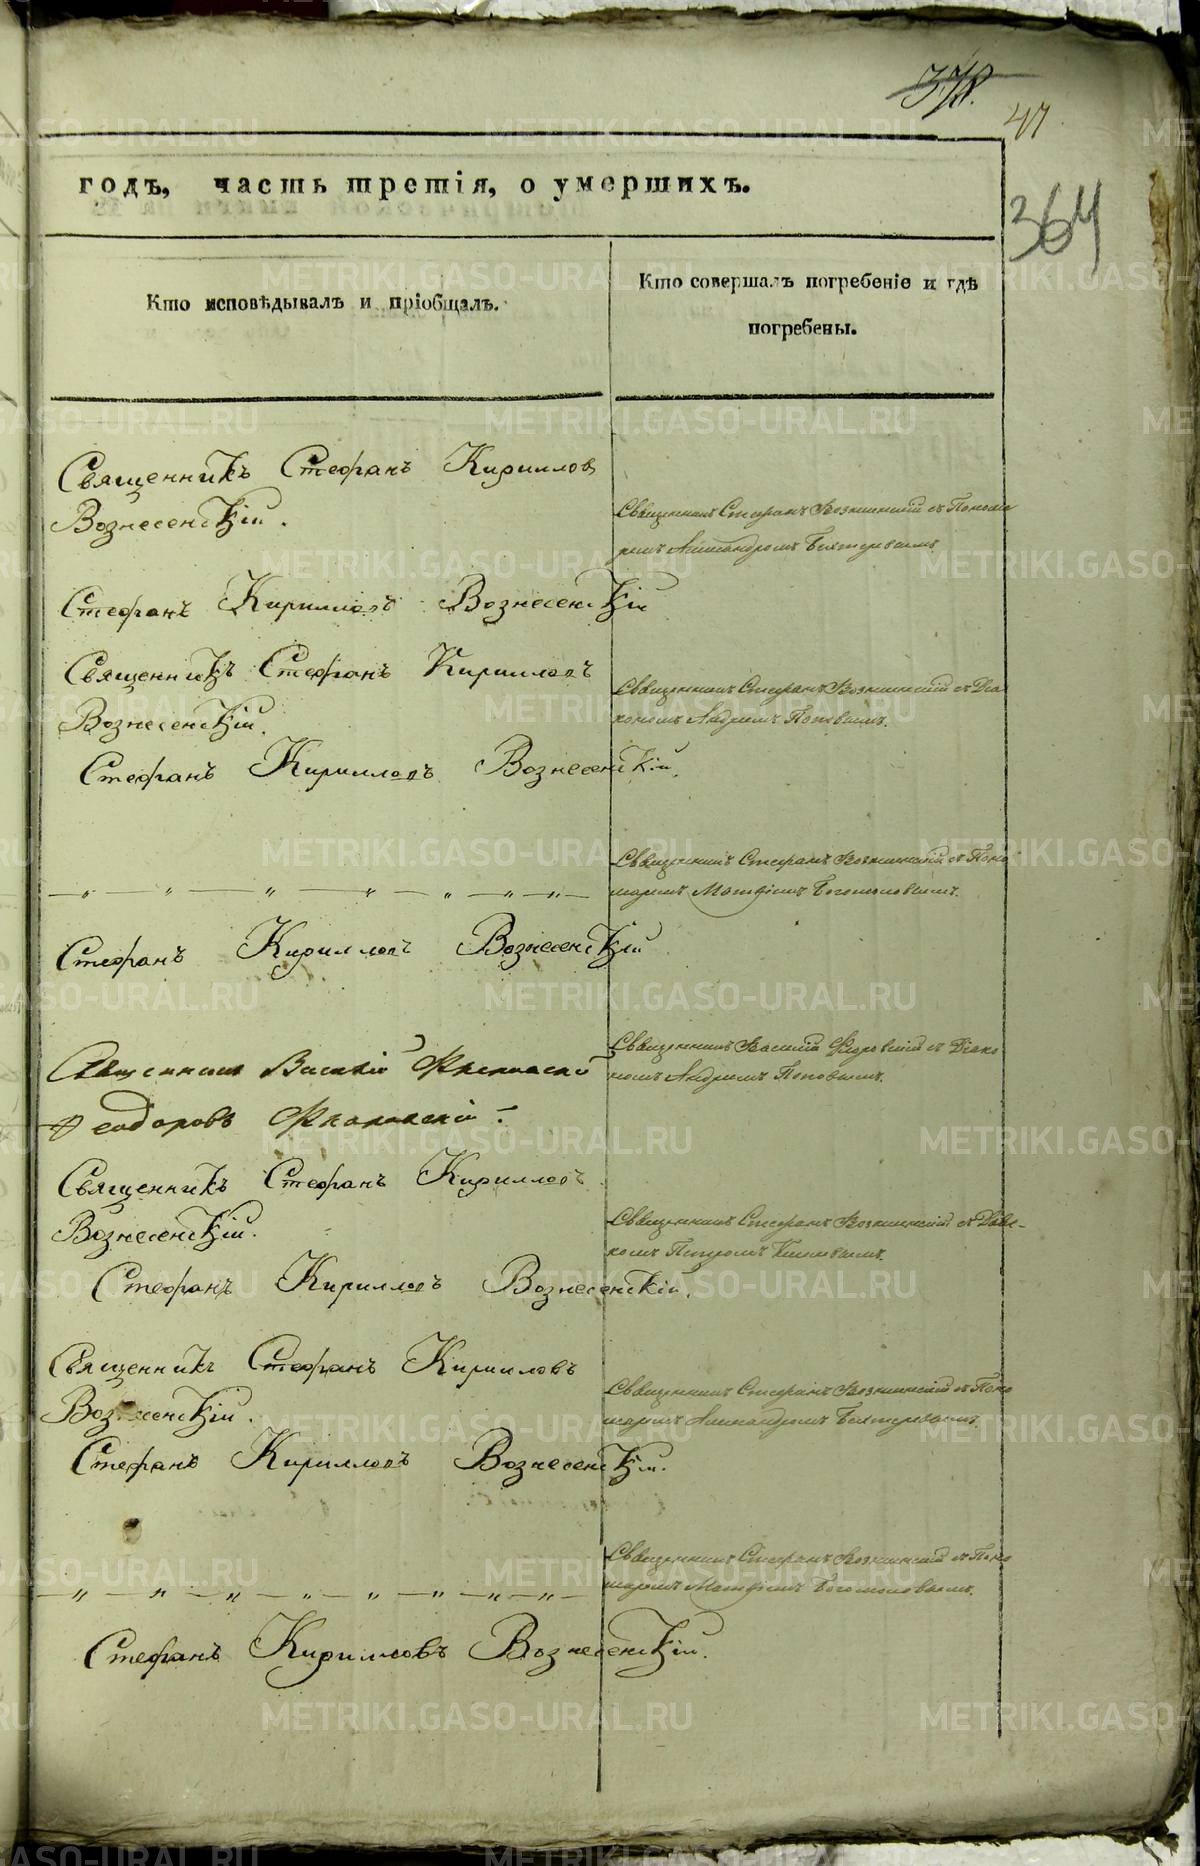 378.
47
364
годъ, часть третія, о умершихъ.
Кто исповѣдывалъ и пріобщалъ.
Кто совершалъ погребеніе и гдѣ
погребены.
Священникъ Стефанъ Кириллов
Вознесенскій.
Священникъ Стефанъ Вознесенский съ Понома
ремъ Александромъ
Стефанъ Кирилловъ Вознесенскій
Священникъ Стефанъ Кирилловъ
Вознесенскій.
Священникъ Стефанъ Вознесенский съ Диа
кономъ Андреемъ Поповымъ.
Стефанъ Кирилловъ Вознесенскій.
Священникъ Стефанъ Вознесенский съ Поно
маремъ Матфіемъ Богомоловымъ.
— „ — „ — „ — „ — „ — „ — „ —
Стефанъ Кирилловъ Вознесенскій
Священникъ Василій съ Діако
номъ Андреемъ Поповымъ.
Священникъ Василій
Феодоровъ
Священникъ Стефанъ Кирилловъ
Вознесенскій.
Священникъ Стефанъ Вознесенский съ
Петромъ
Стефанъ Кирилловъ Вознесенскій.
Священникъ Стефанъ Кирилловъ
Вознесенскій.
Священникъ Стефанъ Вознесенский съ Поно
маремъ Александромъ
Стефанъ Кирилловъ Вознесенскій.
Священникъ Стефанъ Вознесенский съ Поно
маремъ Матфіемъ Богомоловымъ.
— „ — „ — „ — „ — „ — „ — „ —
Стефанъ Кирилловъ Вознесенскій.
METRIKI.GASO-URAL.RU